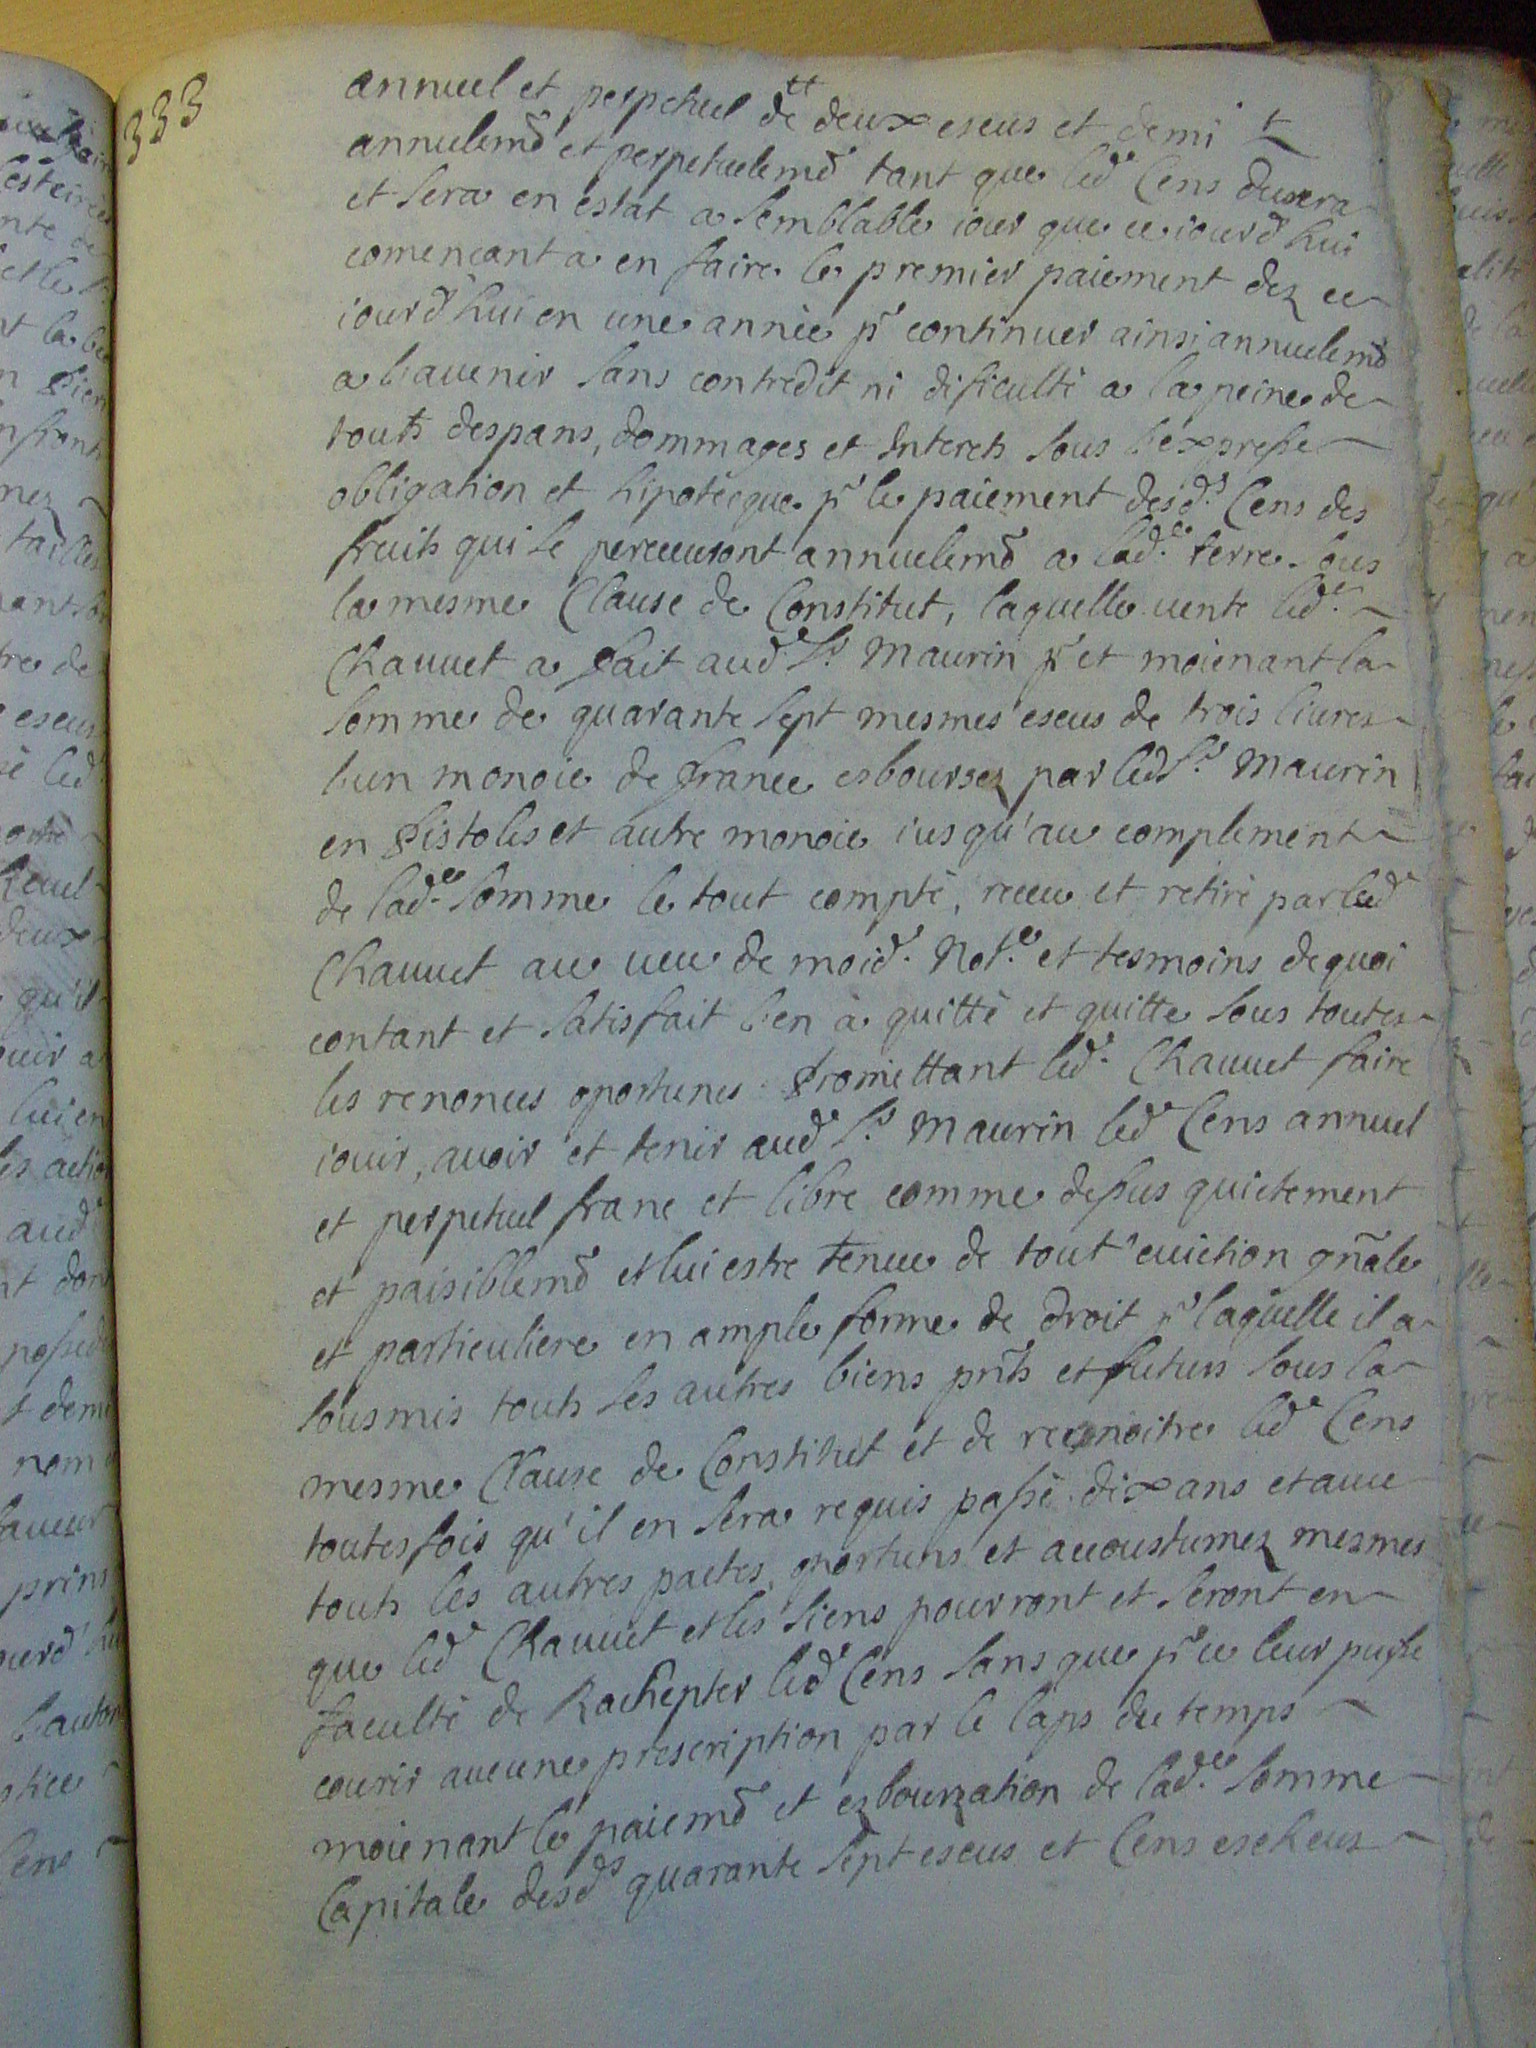 333
annuel et perpetuel de deux escus et demi
annuelemt et perpetuelemt tant que led. Cens durera
et sera en estat a semblable iour que ce iourd'hui
comencant a en faire le premier paiement dez ce
iourd'hui en une année pr continuer ainsi annuelemt
a l'auenir sans contredit ni dificulté a la peine de
touts despans, dommages et Interets sous l'éxpresse
obligation et hipotécque pr le paiement desd.s Cens des
fruits qui se perceuront annuelemt a lad.e terre sous
la mesme Clause de Constitut, laquelle vente led.
Chauuet a fait aud. Sr. Maurin pr et moienant la
somme de quarante sept mesmes escus de trois liures
l'un monoie de france esboursez par led. Sr. Maurin
en Pistoles et autre monoie iusqu'au complement
de lad.e somme le tout compté, receu et retiré par led.
Chauuet au ueu de moid. Not.e et tesmoins de quoi
contant et satisfait l'en à quitté et quitte sous toutes
les renonces oportunes Promettant led. Chauuet faire
iouir, auoir et tenir aud. Sr. Maurin led. Cens annuel
et perpetuel franc et libre comme dessus quietement
et paisiblemt et lui estre tenu de tout'euiction gñale
et particuliere en ample forme de droit pr laquelle il a
sousmis touts ses autres biens pnts et futurs sous la
mesme Clause de Constitut et de reconoitre led. Cens
toutesfois qu'il en sera requis passé dix ans et auec
touts les autres pactes oportuns et accoustumez mesmes
que led. Chauuet et les siens pourront et seront en
faculté de Rachepter led. Cens sans que pr ce leur puisse
courir aucune prescription par le laps du temps
moienant le paiemt et esbourzation de lad.e somme
Capitale desd.s quarante sept escus et Cens escheus